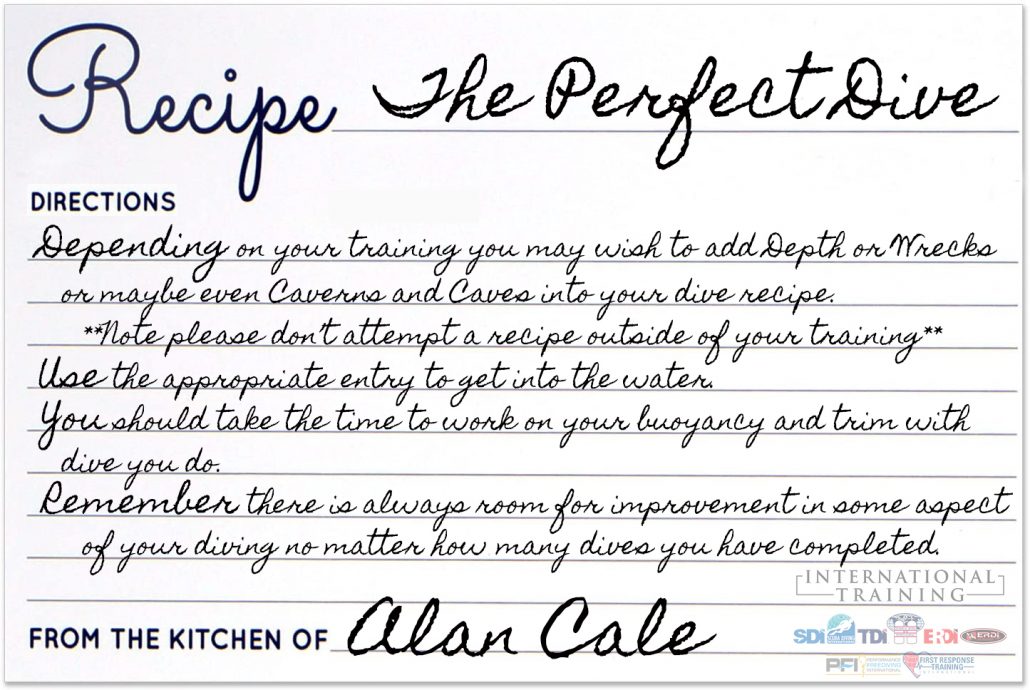 Recipe The Perfect Dive
DIRECTIONS
Depending on your training you may wish to add Depth or Wrecks
or maybe even Caverns and Caves into your dive recipe.
**Note please don't attempt a recipe outside of your training**
Use the appropriate entry to get into the water.
You should take the time to work on your buoyancy and trim with
dive you do.
Remember there is always room for improvement in some aspect
of your diving no matter how many dives you have completed.
INTERNATIONAL
TRAINING
FROM THE KITCHEN OF Alan Cale
SDI SCUBA DIVING INTERNATIONAL TDI ERDI ERDI
PFI PERFORMANCE FREEDIVING INTERNATIONAL FIRST RESPONSE TRAINING INTERNATIONAL